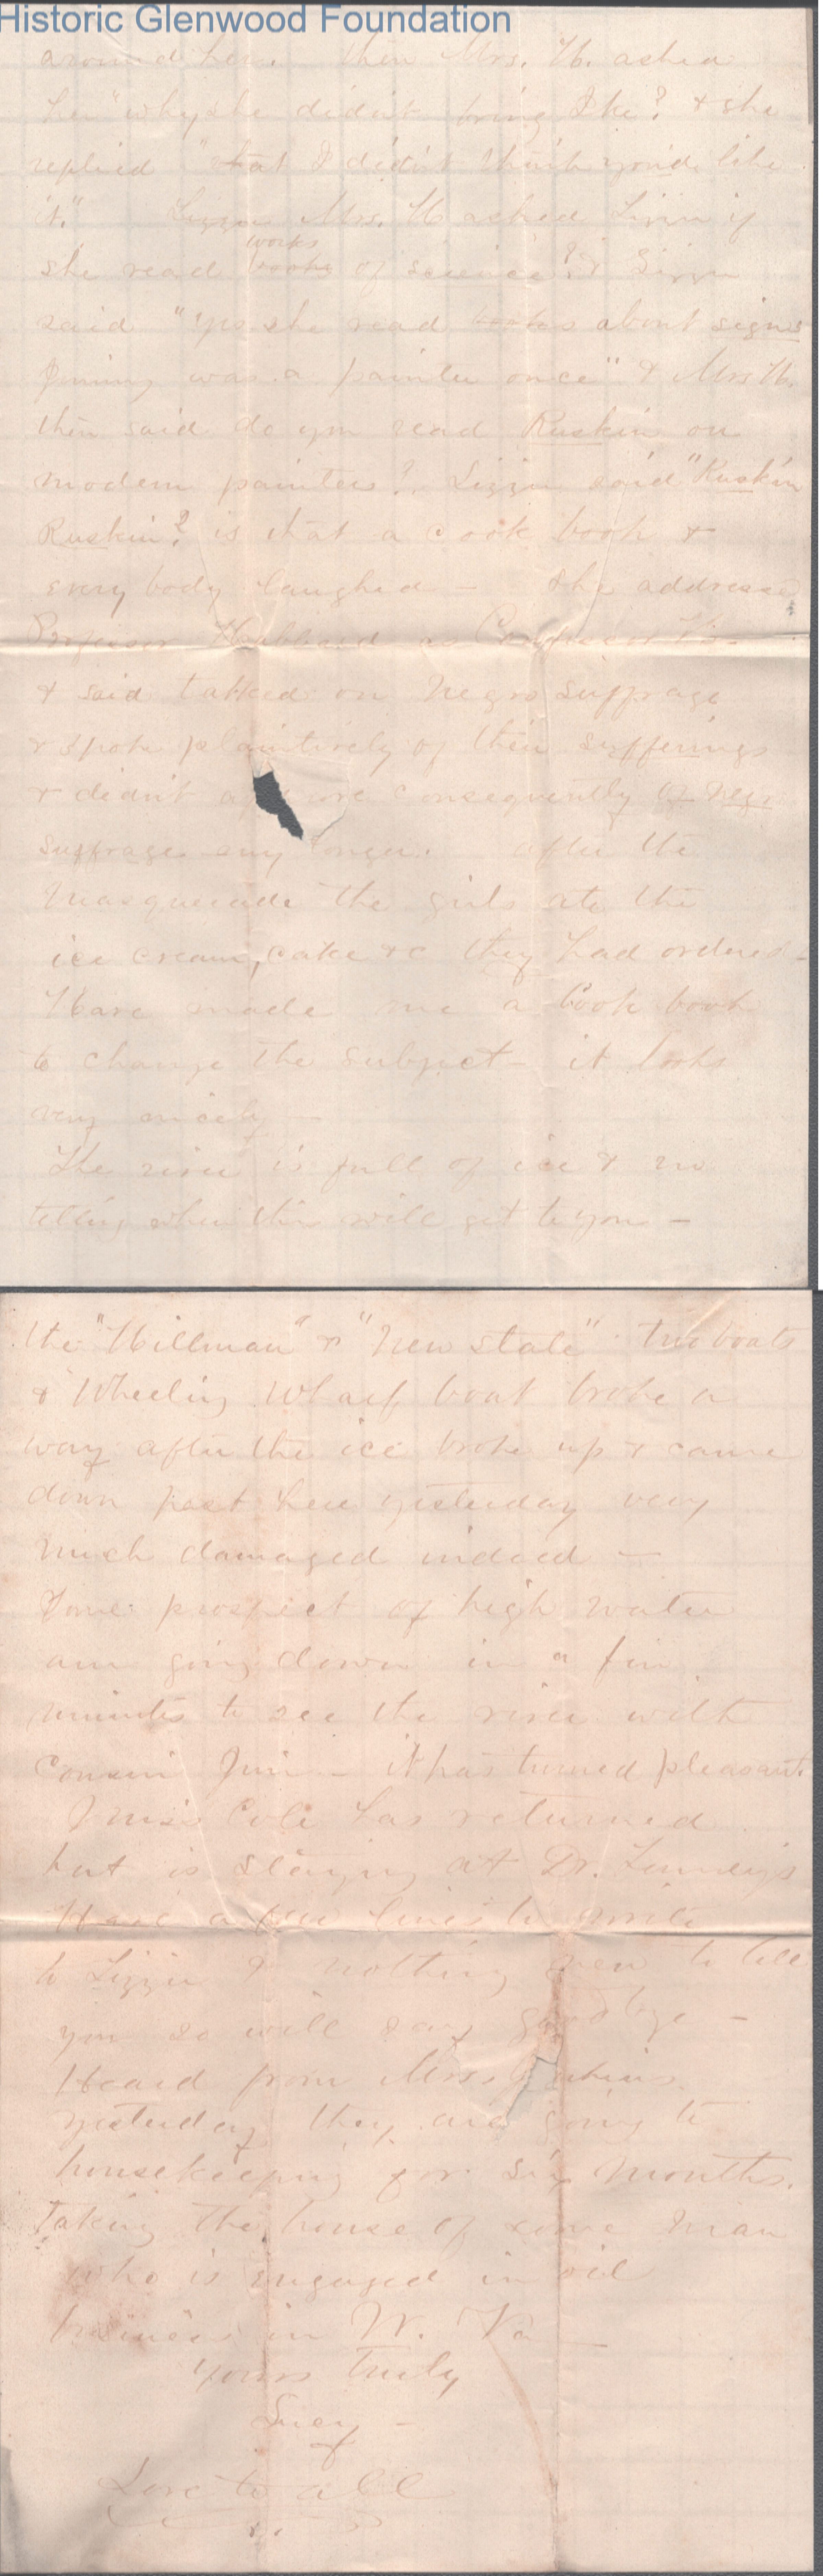 Historic Glenwood Foundation
around her. then Mrs. H. asked
her "why she didn't bring Ike? & she
replied "that I didn't think you'd like
it." Lizzie Mrs. H asked Lizzie if
works
she read books of science? & Lizzie
said "yes she read books about signs
Jimmy was a painter once" & Mrs H.
then said do you read Ruskin on
modern painters? Lizzie said "Ruskin
Ruskin? is that a cook book &
every body laughed — she addressed
Professor Hubbard as
& said talked on Negro suffrage
& spoke plaintively of their sufferings
& didn't consequently of
suffrage any longer. after the
Masquerade the girls ate the
ice cream, cake &c they had ordered —
Have made me a Cook book
to change the subject — it looks
very nicely —
The river is full of ice & no
telling when this will get to you —
the "Hillman" & "New State" two boats
& Wheeling Wharf boat broke a
way after the ice broke up & came
down past here yesterday very
much damaged indeed —
Some prospect of high water
am going down in a few
minutes to see the river with
cousin Jim — it has turned pleasant.
Miss Cole has returned
but is staying at Dr.
Have a few lines to write
to Lizzie & nothing new to tell
you so will say good bye —
Heard from Mrs
yesterday they are going to
housekeeping for six months.
taking the house of some man
who is engaged in oil
business in W. Va —
Yours truly
Lucy —
Love to all